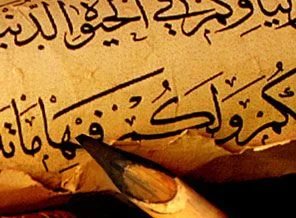 لياؤكم في الحيوة الدنيـ
ـكم ولكم فيها ما